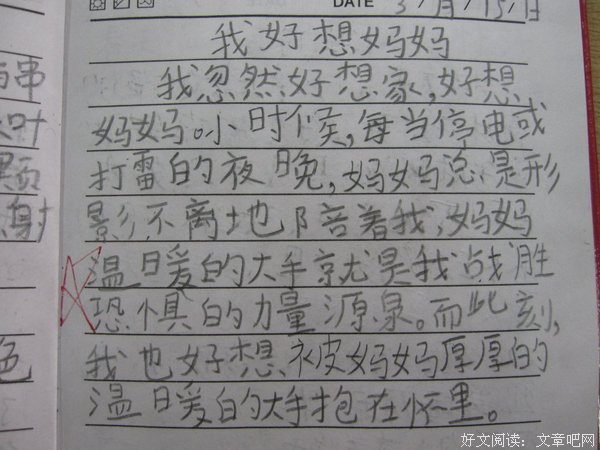 DATE 3/月/15/日
我好想妈妈
我忽然好想家,好想
妈妈。小时候,每当停电或
打雷的夜晚,妈妈总是形
影不离地陪着我,妈妈
温暖的大手就是我战胜
恐惧的力量源泉。而此刻,
我也好想被妈妈厚厚的
温暖的大手抱在怀里。
串
叶
颗
射
色
好文阅读:文章吧网